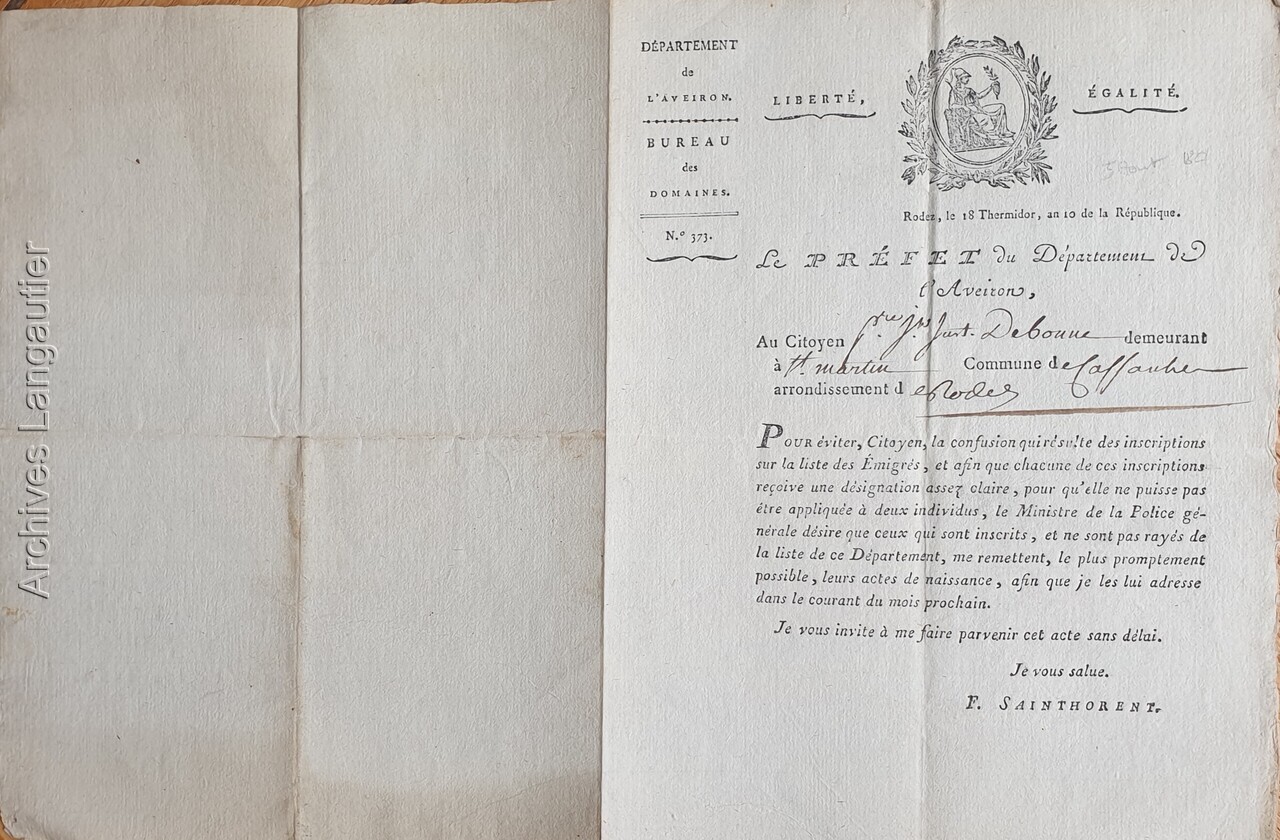 Archives Langautier
DÉPARTEMENT
de
L'AVEIRON.
BUREAU
des
DOMAINES.
N.º 373.
LIBERTÉ,
ÉGALITÉ.
5 Aout
Rodez, le 18 Thermidor, an 10 de la République.
Le PRÉFET du Département de
l'Aveiron,
Au Citoyen p.re j.h Just. Debonne demeurant
à St. martin Commune de
arrondissement de Rodez
POUR éviter, Citoyen, la confusion qui résulte des inscriptions
sur la liste des Émigrés, et afin que chacune de ces inscriptions
reçoive une désignation assez claire, pour qu'elle ne puisse pas
être appliquée à deux individus, le Ministre de la Police gé-
nérale désire que ceux qui sont inscrits, et ne sont pas rayés de
la liste de ce Département, me remettent, le plus promptement
possible, leurs actes de naissance, afin que je les lui adresse
dans le courant du mois prochain.
Je vous invite à me faire parvenir cet acte sans délai.
Je vous salue.
F. SAINTHORENT.